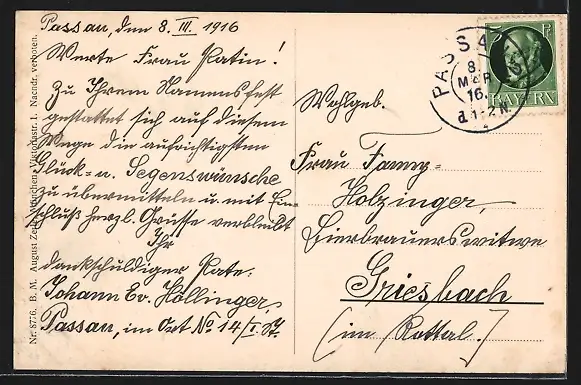 Passau, den 8. III. 1916
Werte Frau Patin!
Zu Ihrem Namensfest
gestattet sich auf diesem
Wege die aufrichtigsten
Glück- u. Segenswünsche
zu übermitteln u. mit Ein-
schluß herzl. Grüsse verbleibt
Ihr
dankschuldiger Pate:
Johann Ev. Höllinger,
Passau, im Ort No 14/I. St.
Nr. 8776. B. M. August Zerle, München, Viktoriastr. 1. Nachdr. verboten.
PASSAU
8. MÄR 16.
BAYERN
Wohlgeb.
Frau Fanny
Holzinger,
Bierbrauerswitwe
Griesbach
(im Rottal.)